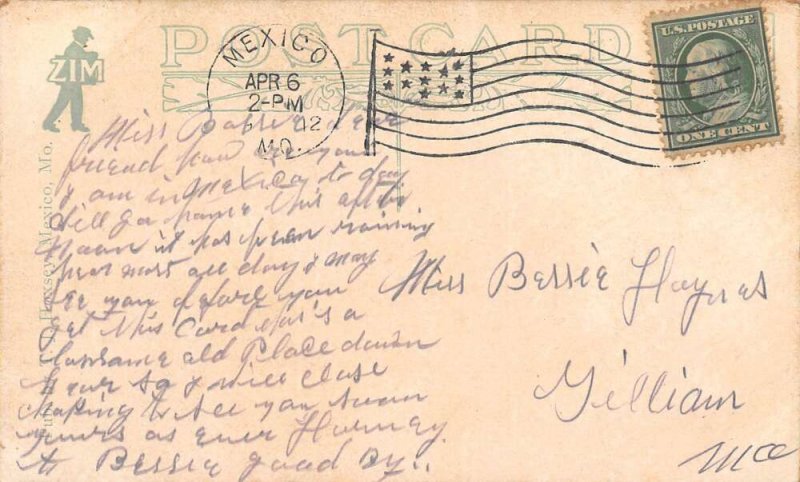 POST CARD
ZIM
MEXICO
APR 6
2-PM
12
MO.
U.S. POSTAGE
ONE CENT
Miss Bessie dear
friend how are you
I am in Mexico to day
Will go home this after
noon it has been raining
hear most all day I may
see you before you
get this Card this a
lonsame old Place down
hear so I will close
hoping to see you soon
yours as ever Harney
to Bessie good By..
Miss Bessie Haynes
Gilliam
Mo
Mexico, Mo.